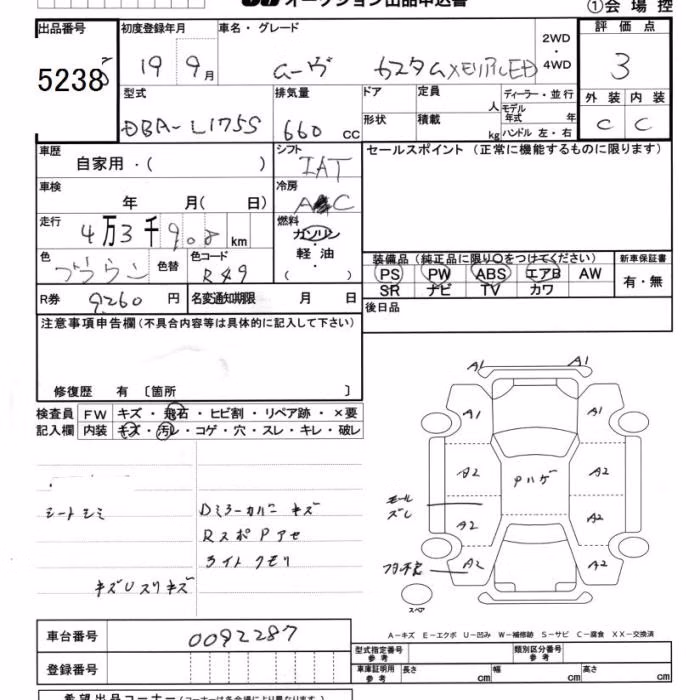 オークション出品申込書
①会場控
出品番号 初度登録年月 車名・グレード 2WD・4WD 評価点
5238 19 9月 ムーヴ カスタムXEリミテED 3
型式 排気量 ドア 定員 人 ディーラー・並行 外装 内装
DBA-L175S 660 cc 形状 積載 kg モデル年式 年 ハンドル 左・右 C C
車歴 自家用・( ) シフト IAT セールスポイント (正常に機能するものに限ります)
車検 年 月( 日) 冷房 AC
走行 4万3千908km 燃料 ガソリン・軽油・( )
色 ブラウン 色替 色コード R49
装備品(純正品に限り〇をつけてください) 新車保証書
PS PW ABS エアB AW 有・無
SR ナビ TV カワ
R券 9260円 名変通知期限 月 日 後日品
注意事項申告欄(不具合内容等は具体的に記入して下さい)
修復歴 有 〔箇所 〕
検査員 FW キズ・飛石・ヒビ割・リペア跡・×要
記入欄 内装 キズ・汚レ・コゲ・穴・スレ・キレ・破レ
シートシミ
Dミラーカバーキズ
RスポPアセ
ライトクモリ
キズUスリキズ
A1 A1
A1 A1
A2 Pハゲ A2
モールズレ
A2 A2
A2 A2
スペア
A-キズ E-エクボ U-凹み W-補修跡 S-サビ C-腐食 XX-交換済
車台番号 0092287
登録番号
型式指定番号 参考 類別区分番号 参考
車庫証明用 参考 長さ cm 幅 cm 高さ cm
希望出品コーナー